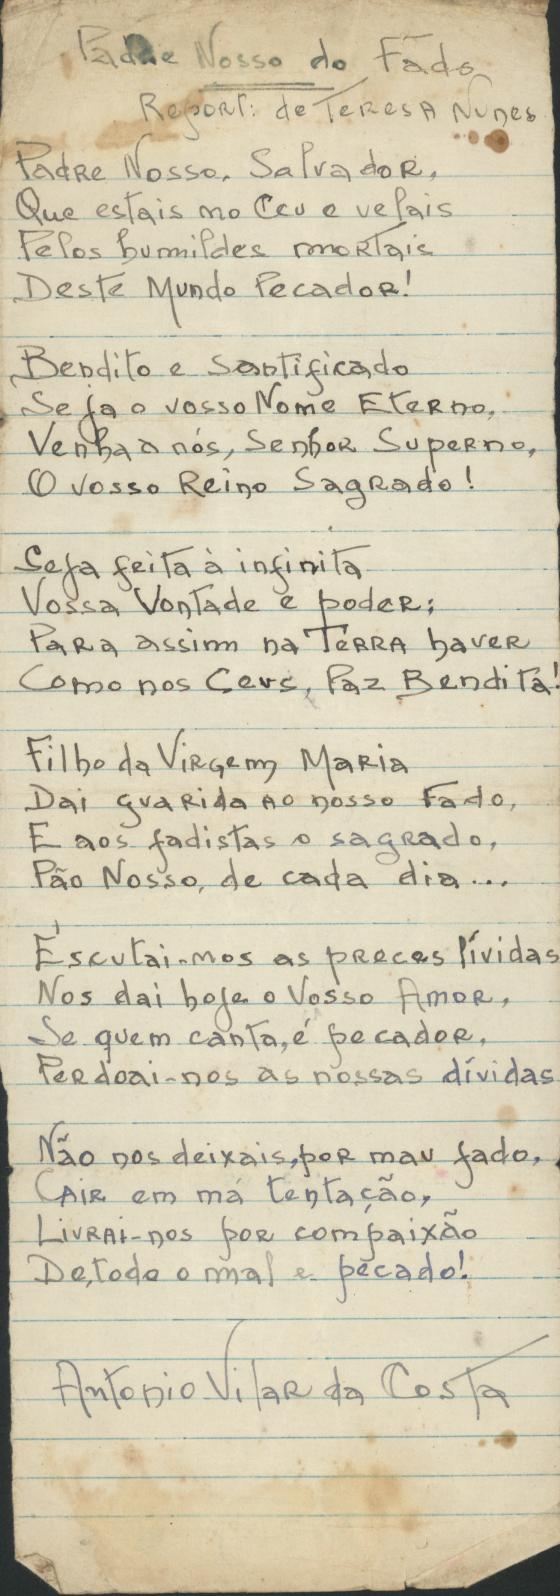 Padre Nosso do Fado
Report: de Teresa Nunes
Padre Nosso, Salvador,
Que estais no Ceu e velais
Pelos humildes mortais
Deste Mundo Pecador!
Bendito e santificado
Seja o vosso Nome Eterno,
Venha a nós, Senhor Superno,
O vosso Reino Sagrado!
Seja feita à infinita
Vossa Vontade e poder;
Para assim na Terra haver
Como nos Ceus, Paz Bendita!
Filho da Virgem Maria
Dai guarida ao nosso Fado,
E aos fadistas o sagrado,
Pão Nosso, de cada dia...
Escutai-nos as preces lívidas
Nos dai hoje o Vosso Amor,
Se quem canta, é pecador,
Perdoai-nos as nossas dívidas
Não nos deixais, por mau fado,
Cair em má tentação,
Livrai-nos por compaixão
De, todo o mal e pecado!
Antonio Vilar da Costa